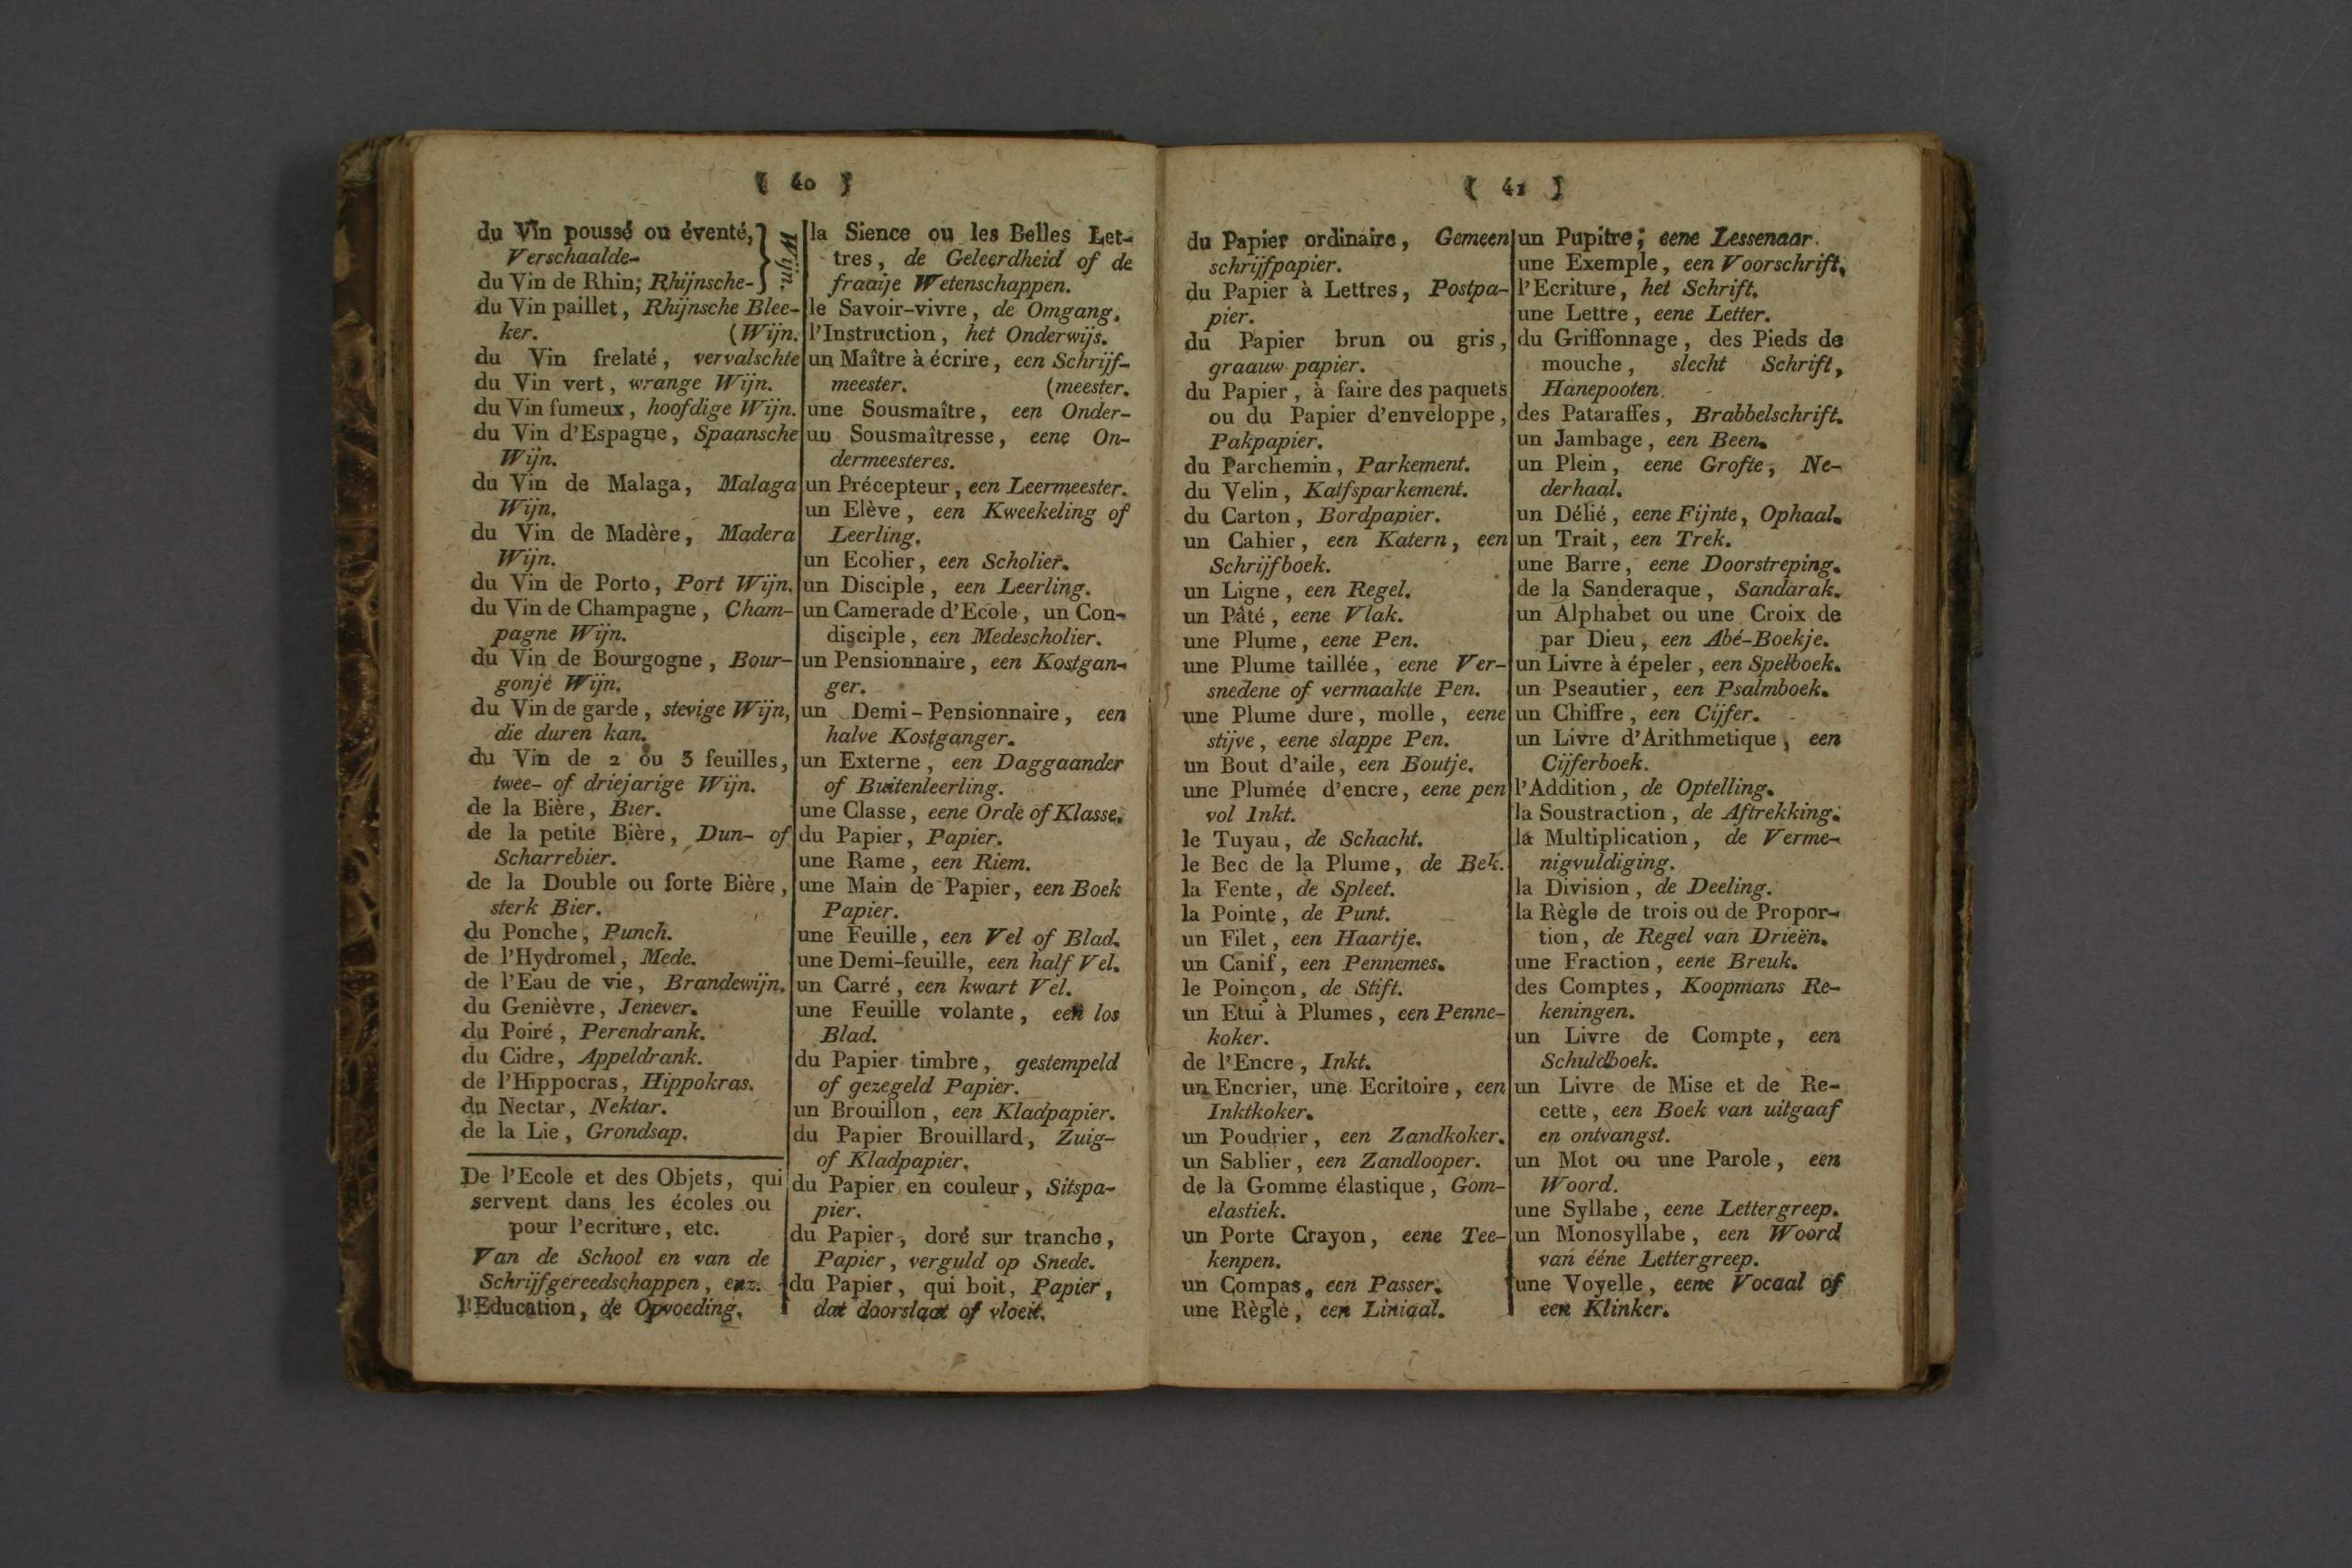 ( 40 )
du Vin poussé ou éventé,
Verschaalde-
du Vin de Rhin; Rhijnsche-
Wijn.
du Vin paillet, Rhijnsche Blee-
ker. (Wijn.
du Vin frelaté, vervalschte
du Vin vert, wrange Wijn.
du Vin fumeux, hoofdige Wijn.
du Vin d'Espagne, Spaansche
Wijn.
du Vin de Malaga, Malaga
Wijn.
du Vin de Madère, Madera
Wijn.
du Vin de Porto, Port Wijn.
du Vin de Champagne, Cham-
pagne Wijn.
du Vin de Bourgogne, Bour-
gonje Wijn.
du Vin de garde, stevige Wijn,
die duren kan.
du Vin de 2 ou 3 feuilles,
twee- of driejarige Wijn.
de la Bière, Bier.
de la petite Bière, Dun- of
Scharrebier.
de la Double ou forte Bière,
sterk Bier.
du Ponche, Punch.
de l'Hydromel, Mede.
de l'Eau de vie, Brandewijn.
du Genièvre, Jenever.
du Poiré, Perendrank.
du Cidre, Appeldrank.
de l'Hippocras, Hippokras.
du Nectar, Nektar.
de la Lie, Grondsap.
De l'Ecole et des Objets, qui
servent dans les écoles ou
pour l'ecriture, etc.
Van de School en van de
Schrijfgereedschappen, enz.
l'Education, de Opvoeding.
la Sience ou les Belles Let-
tres, de Geleerdheid of de
fraaije Wetenschappen.
le Savoir-vivre, de Omgang.
l'Instruction, het Onderwijs.
un Maître à écrire, een Schrijf-
meester. (meester.
une Sousmaître, een Onder-
un Sousmaîtresse, eene On-
dermeesteres.
un Précepteur, een Leermeester.
un Elève, een Kweekeling of
Leerling.
un Ecolier, een Scholier.
un Disciple, een Leerling.
un Camerade d'Ecole, un Con-
disciple, een Medescholier.
un Pensionnaire, een Kostgan-
ger.
un Demi-Pensionnaire, een
halve Kostganger.
un Externe, een Daggaander
of Buitenleerling.
une Classe, eene Orde of Klasse.
du Papier, Papier.
une Rame, een Riem.
une Main de Papier, een Boek
Papier.
une Feuille, een Vel of Blad.
une Demi-feuille, een half Vel.
un Carré, een kwart Vel.
une Feuille volante, een los
Blad.
du Papier timbre, gestempeld
of gezegeld Papier.
un Brouillon, een Kladpapier.
du Papier Brouillard, Zuig-
of Kladpapier.
du Papier en couleur, Sitspa-
pier.
du Papier, doré sur tranche,
Papier, verguld op Snede.
du Papier, qui boit, Papier,
dat doorslaat of vloeit.
( 41 )
du Papier ordinaire, Gemeen
schrijfpapier.
du Papier à Lettres, Postpa-
pier.
du Papier brun ou gris,
graauw papier.
du Papier, à faire des paquets
ou du Papier d'enveloppe,
Pakpapier.
du Parchemin, Parkement.
du Velin, Kalfsparkement.
du Carton, Bordpapier.
un Cahier, een Katern, een
Schrijfboek.
un Ligne, een Regel.
un Pâté, eene Vlak.
une Plume, eene Pen.
une Plume taillée, eene Ver-
snedene of vermaakte Pen.
une Plume dure, molle, eene
stijve, eene slappe Pen.
un Bout d'aile, een Boutje.
une Plumée d'encre, eene pen
vol Inkt.
le Tuyau, de Schacht.
le Bec de la Plume, de Bek.
la Fente, de Spleet.
la Pointe, de Punt.
un Filet, een Haartje.
un Canif, een Pennemes.
le Poinçon, de Stift.
un Etui à Plumes, een Penne-
koker.
de l'Encre, Inkt.
un Encrier, une Ecritoire, een
Inktkoker.
un Poudrier, een Zandkoker.
un Sablier, een Zandlooper.
de la Gomme élastique, Gom-
elastiek.
un Porte Crayon, eene Tee-
kenpen.
un Compas, een Passer.
une Règle, een Liniaal.
un Pupitre; eene Lessenaar.
une Exemple, een Voorschrift.
l'Ecriture, het Schrift.
une Lettre, eene Letter.
du Griffonnage, des Pieds de
mouche, slecht Schrift,
Hanepooten.
des Pataraffes, Brabbelschrift.
un Jambage, een Been.
un Plein, eene Grofte, Ne-
derhaal.
un Délié, eene Fijnte, Ophaal.
un Trait, een Trek.
une Barre, eene Doorstreping.
de la Sanderaque, Sandarak.
un Alphabet ou une Croix de
par Dieu, een Abé-Boekje.
un Livre à épeler, een Spelboek.
un Pseautier, een Psalmboek.
un Chiffre, een Cijfer.
un Livre d'Arithmetique, een
Cijferboek.
l'Addition, de Optelling.
la Soustraction, de Aftrekking.
la Multiplication, de Verme-
nigvuldiging.
la Division, de Deeling.
la Règle de trois ou de Propor-
tion, de Regel van Drieën.
une Fraction, eene Breuk.
des Comptes, Koopmans Re-
keningen.
un Livre de Compte, een
Schuldboek.
un Livre de Mise et de Re-
cette, een Boek van uitgaaf
en ontvangst.
un Mot ou une Parole, een
Woord.
une Syllabe, eene Lettergreep.
un Monosyllabe, een Woord
van ééne Lettergreep.
une Voyelle, eene Vocaal of
een Klinker.